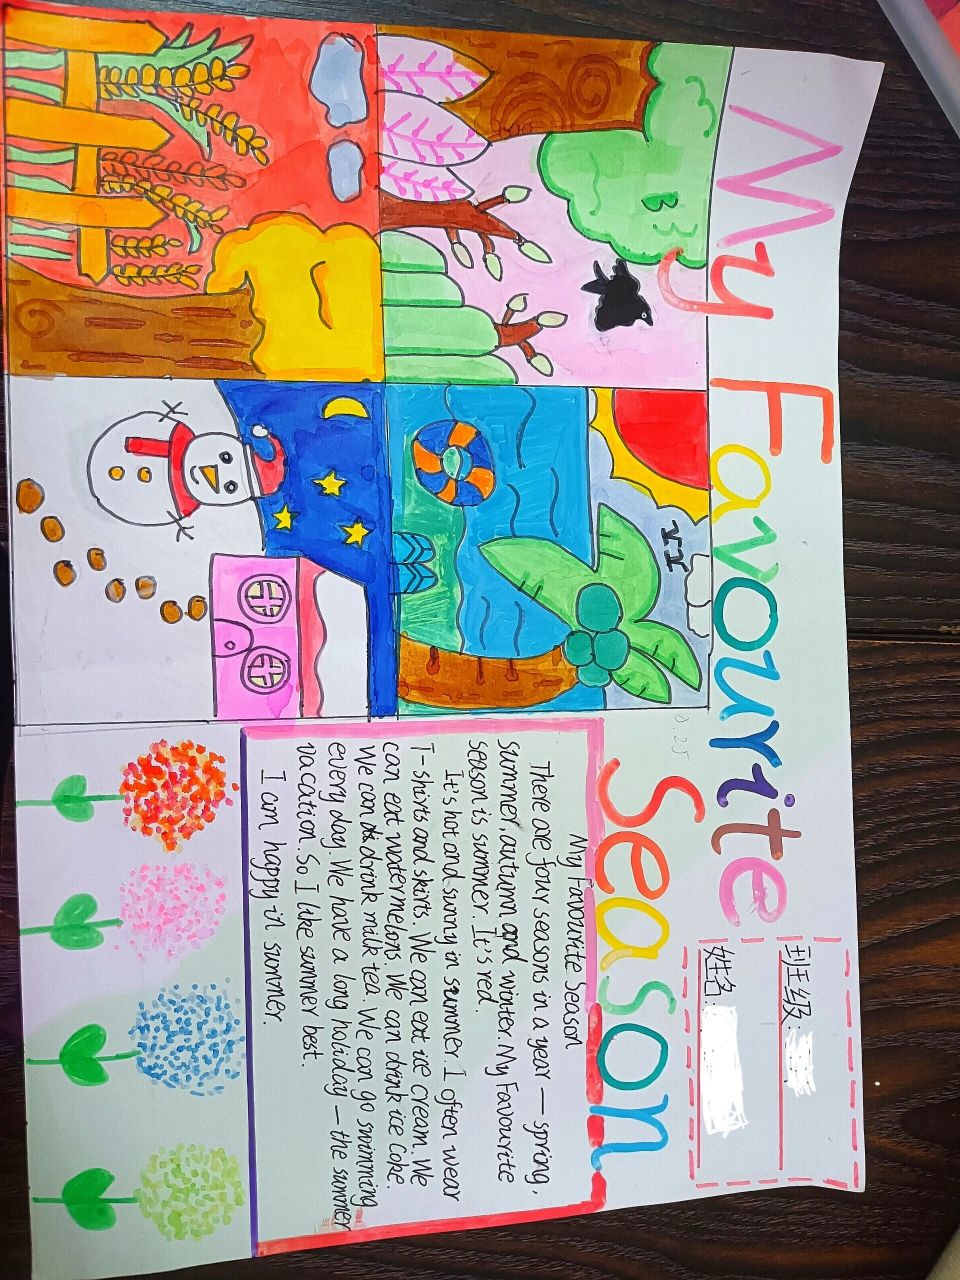 My Favourite
Season
班级:
姓名:
0.25
My Favourite Season
There are four seasons in a year — spring,
summer, autumn and winter. My Favourite
season is summer. It's red.
It's hot and sunny in summer. I often wear
T-shirts and skirts. We can eat ice cream. We
can eat watermelons. We can drink ice Coke.
We can drink milk tea. We can go swimming
every day. We have a long holiday — the summer
vacation. So I like summer best.
I am happy in summer.